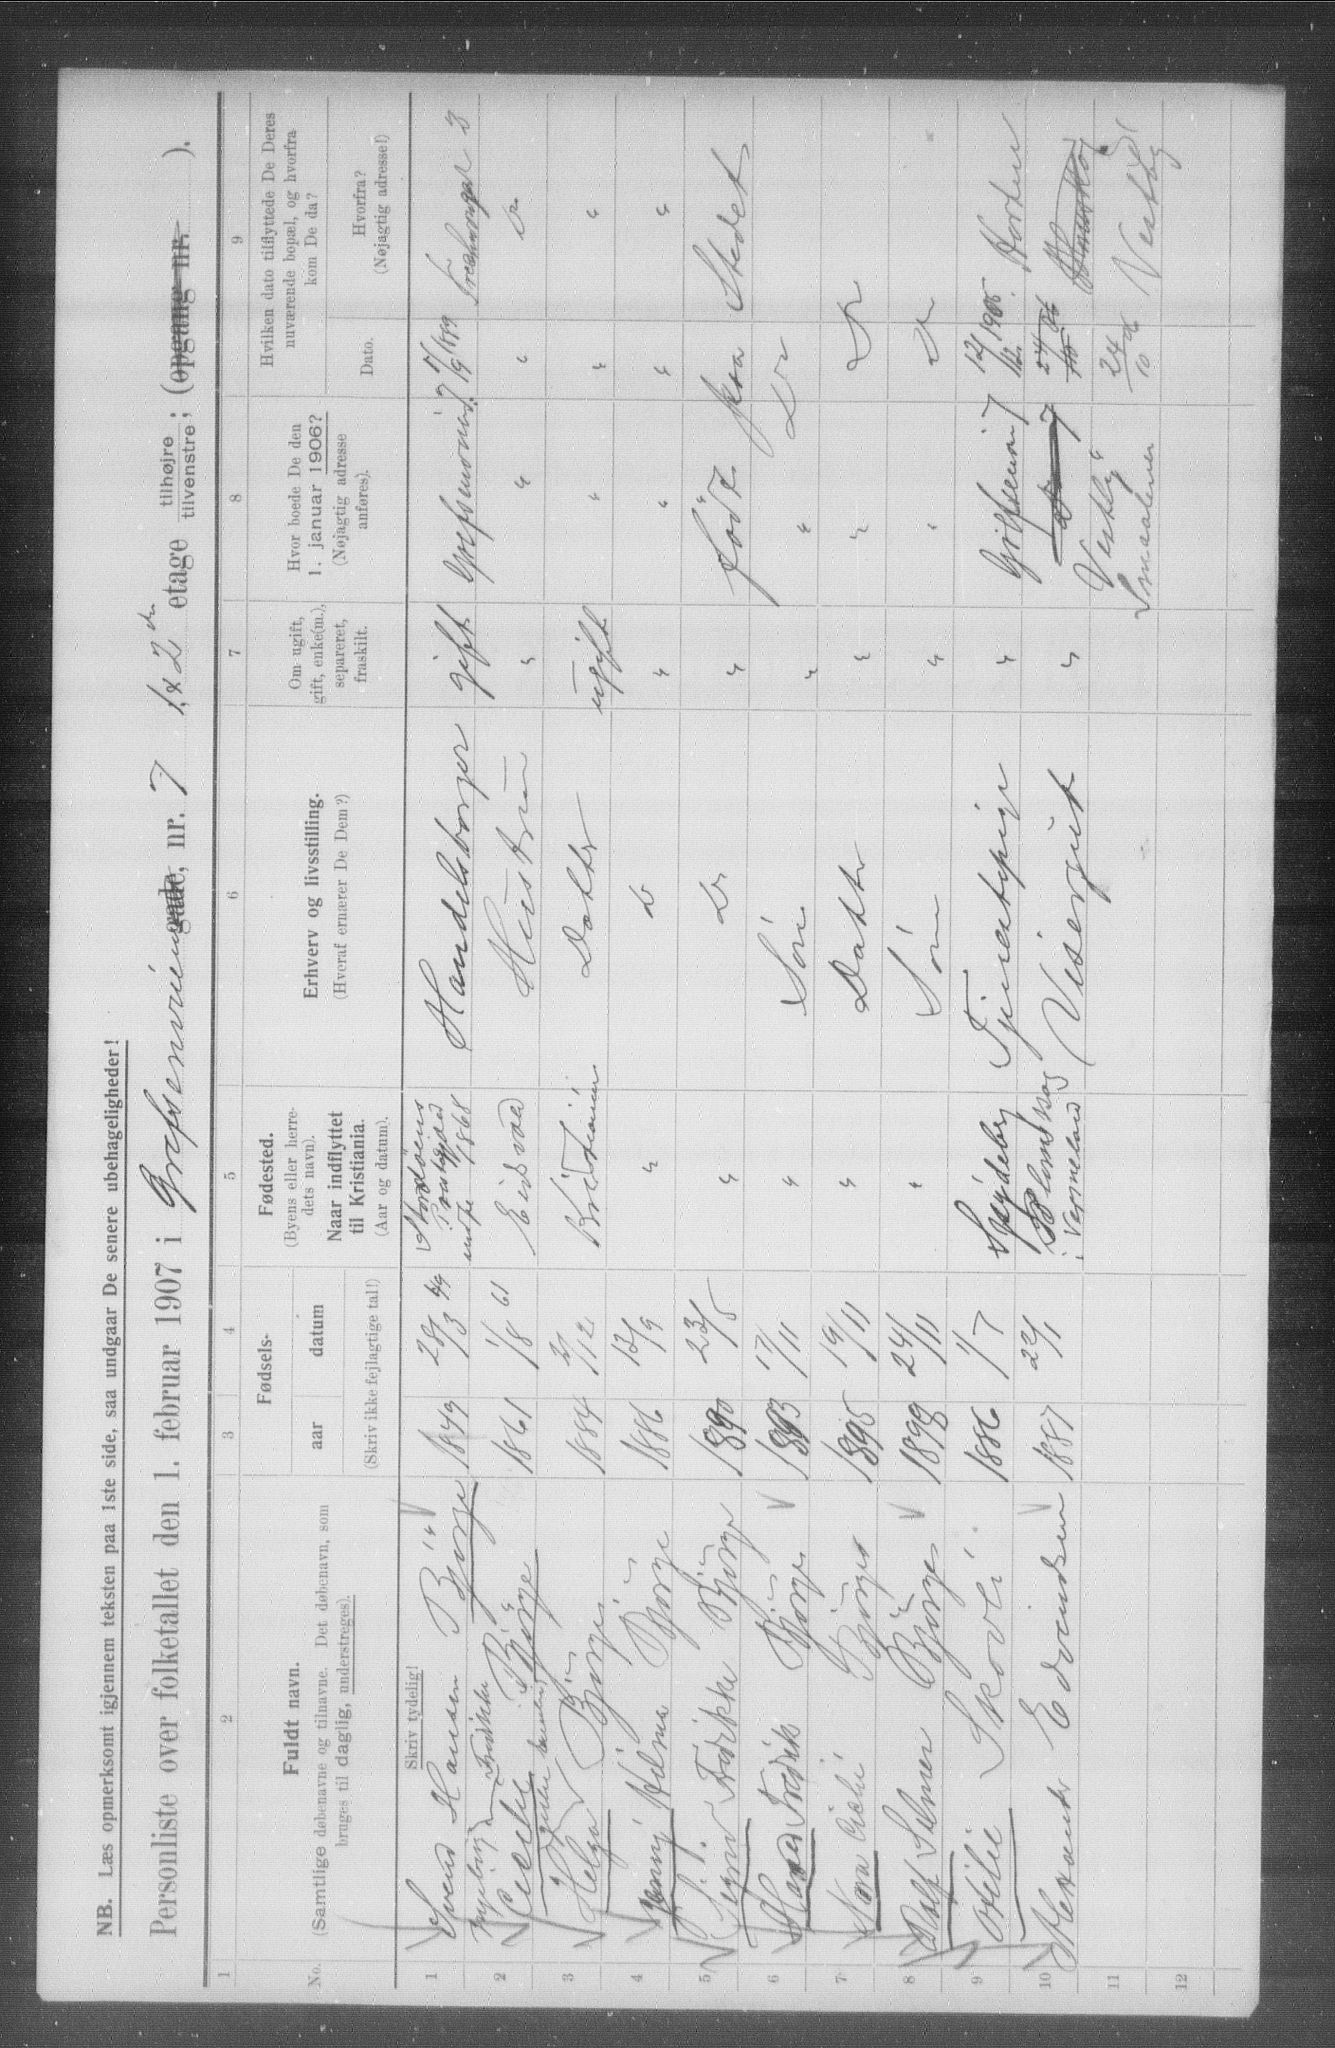 NB. Læs opmerksomt igjennem teksten paa 1ste side, saa undgaar De senere ubehageligheder!
Personliste over folketallet den 1. februar 1907 i Grefsenveien gade, nr. 7 1 & 2den etage tilhøjre tilvenstre; (opgang nr. ).
1 2 3 4 5 6 7 8 9
No.
Fuldt navn.
(Samtlige døbenavne og tilnavne. Det døbenavn, som
bruges til daglig, understreges).
Fødsels-
aar datum
(Skriv ikke fejlagtige tal!)
Fødested.
(Byens eller herre-
dets navn).
Naar indflyttet
til Kristiania.
(Aar og datum).
Erhverv og livsstilling.
(Hveraf ernærer De Dem?)
Om ugift,
gift, enke(m.),
separeret,
fraskilt.
Hvor boede De den
1. januar 1906?
(Nøjagtig adresse
anføres).
Hvilken dato tilflyttede De Deres
nuværende bopæl, og hvorfra
kom De da?
Dato.
Hvorfra?
(Nøjagtig adresse!)
Skriv tydelig!
1 Svend Hansen Bjørge 1849 28/3 49 1868 Handelsborger gift 7
2 Bjørge 1861 1/8 61 Eidsvold Hustru "
3 Helga Bjørge 1884 /12 Kristiania Datter ugift " " "
4 Jenny Hilma Bjørge 1886 13/9 " Do " " " "
5 Signe Fredrikke Bjørge 1890 23/5 " Do " født paa Stedet
6 Hans Fredrik Bjørge 1893 17/11 " Søn " " Do
7 Bjørge 1895 19/11 " Datter " " Do
8 Rolf Selmer Bjørge 1898 24/11 " Søn " " Do
9 Otilie Skovli 1886 1/7 Spydeberg Tjenestepige " 7 12/12 1905 Horten
10 Alexander Edvindsen 1887 22/1 i Vermeland Visergut " 7
11 Vestby Smaalenene 24/10 06 Vestby
12